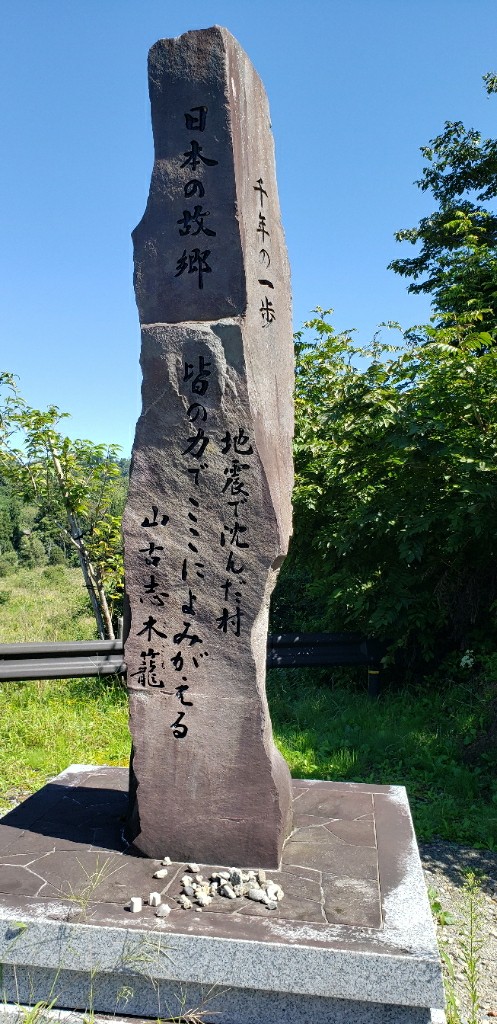 千年の一歩
日本の故郷
地震で沈んだ村
皆の力でここによみがえる
山古志木籠